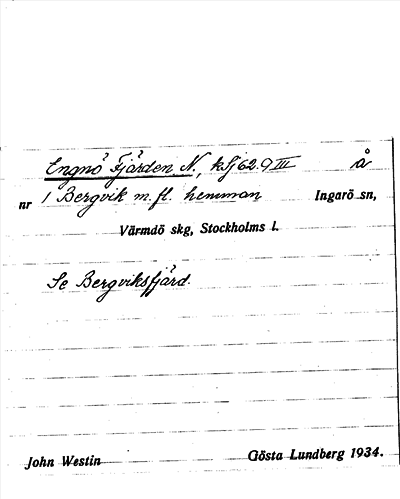 Engnö Fjärden N., kfj 62. 9 III å
nr 1 Bergvik m. fl. hemman Ingarö sn,
Värmdö skg, Stockholms l.
Se Bergviksfjärd.
John Westin Gösta Lundberg 1934.